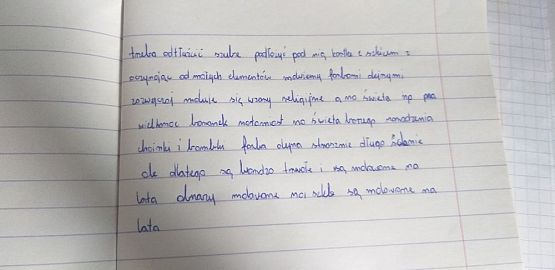 trzeba odtłuścić szybe podłożyć pod nią kartke z szkicem i
zaczynając od małych elementów malujemy farbami olejnymi
zazwyczaj maluje się wzory religijne a na święta np
wielkanoc baranek natomiast na święta bożego narodzenia
choinki i bombki farba olejna strasznie długo schnie
ale dlatego są bardzo trwałe i są malowane na
lata obrazy malowane na szkle są malowane na
lata